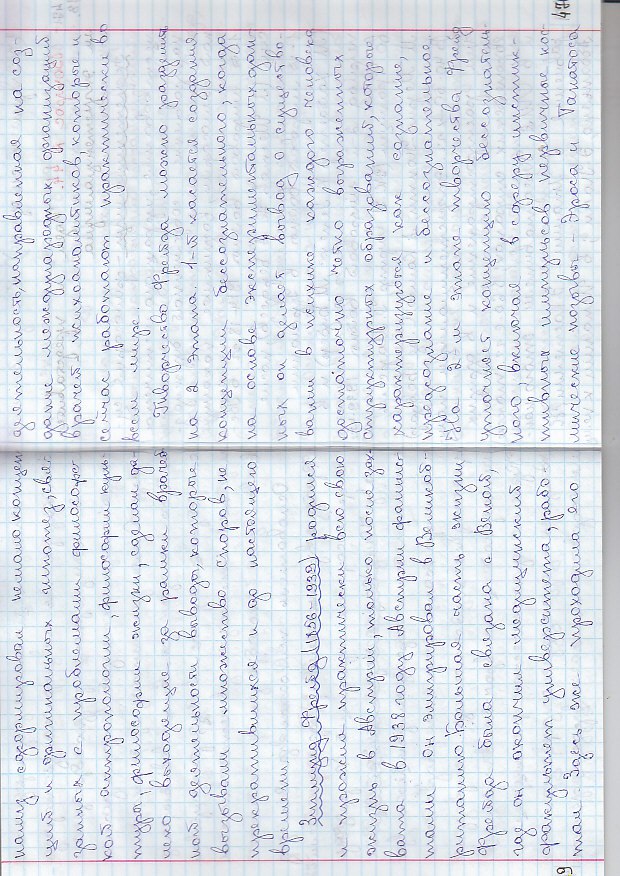 нализ сформировал немало концеп
ций и оригинальных гипотез, свя-
занных с проблемами философс-
кой антропологии, философии куль-
туры, философии жизни, сделал да-
леко выходящие за рамки врачеб
ной деятельности выводы, которые
вызвали множество споров, не
прекратившихся и до настоящего
времени.
Зигмунд Фрейд (1856-1939) родился
и прожил практически всю свою
жизнь в Австрии, только после зах-
вата в 1938 году Австрии фашис-
тами он эмигрировал в Великоб-
ританию. Большая часть жизни
Фрейда была связана с Веной,
где он окончил медицинский
факультет университета, рабо-
тал. Здесь же проходила его
9
деятельность, направленная на соз-
дание международных организаций
врачей психоаналитиков, которые и
сейчас работают практически во
всем мире.
Творчество Фрейда можно разделить
на 2 этапа. 1-й касается создания
концепции бессознательного, когда
на основе экспериментальных дан-
ных он делает вывод о существо-
вании в психике каждого человека
достаточно четко выраженных
структурных образований, которые
характеризуются как сознание,
предсознание и бессознательное.
На 2-м этапе творчества Фрейд
уточняет концепцию бессознатель-
ного, включая в сферу инстинк-
тивных импульсов первичные кос-
мические позывы - Эроса и Танатоса